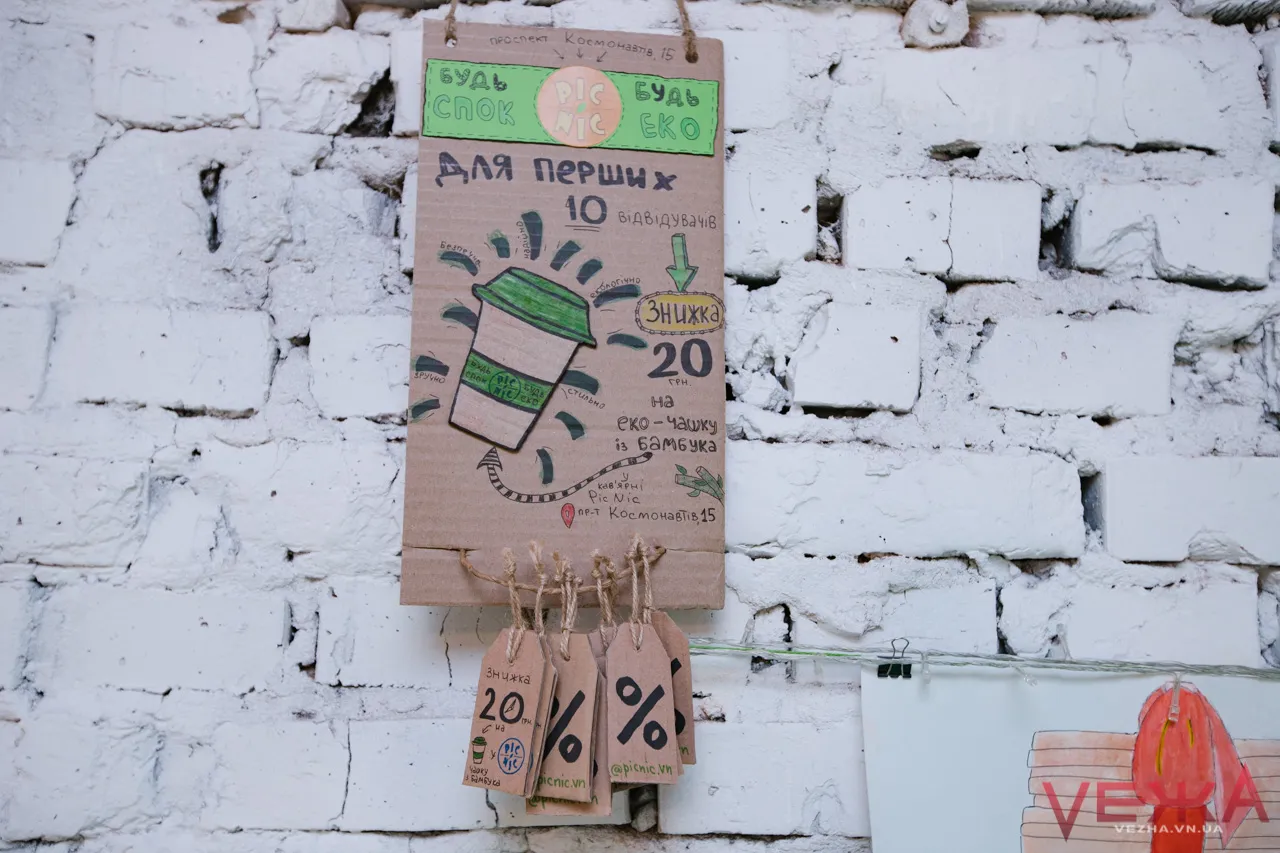 проспект Космонавтів, 15
БУДЬ СПОК
PIC NIC
БУДЬ ЕКО
Для перших
10 відвідувачів
ЗНИЖКА
20
грн.
на
еко-чашку
із бамбука
безпечно
надійно
екологічно
зручно
стильно
БУДЬ СПОК
PIC NIC
БУДЬ ЕКО
у
кав'ярні
Pic Nic
пр-т Космонавтів, 15
знижка
20 грн
на
у
PIC NIC
чашку
з бамбука
%
picnic.vn
%
@picnic.vn
VЕЖА
VEZHA.VN.UA